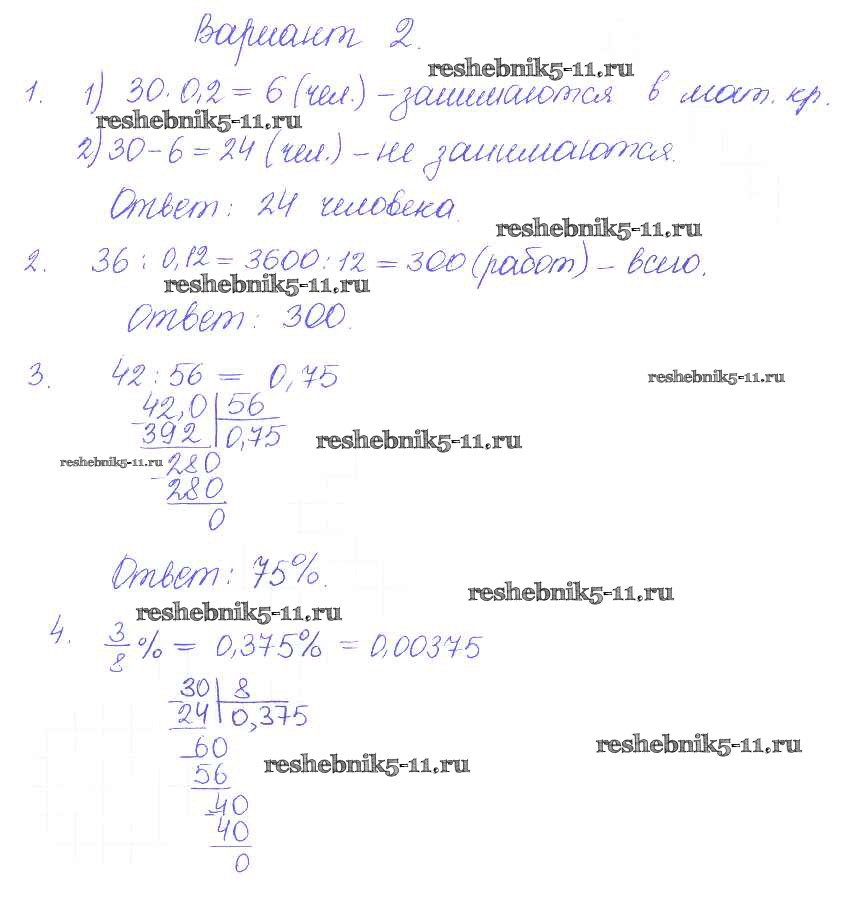 Вариант 2.
reshebnik5-11.ru
1. 1) 30·0,2 = 6 (чел.) – занимаются в мат. кр.
reshebnik5-11.ru
2) 30 – 6 = 24 (чел.) – не занимаются.
Ответ: 24 человека.
reshebnik5-11.ru
2. 36 : 0,12 = 3600 : 12 = 300 (работ) – всего.
reshebnik5-11.ru
Ответ: 300.
3. 42 : 56 = 0,75
reshebnik5-11.ru
42,0 56
392 0,75
reshebnik5-11.ru
reshebnik5-11.ru
280
280
0
Ответ: 75%.
reshebnik5-11.ru
reshebnik5-11.ru
4. 3/8 % = 0,375% = 0,00375
30 8
24 0,375
60
reshebnik5-11.ru
reshebnik5-11.ru
56
40
40
0